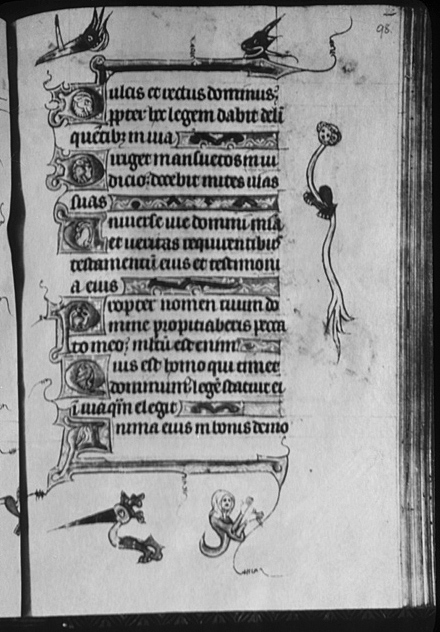 98.
Dulcis et rectus dominus:
ppter hc legem dabit deli
quētibȝ in uia
Diriget mansuetos in iu
dicio: docebit mites uias
suas
Uniuerse uie domini mīa
et ueritas requirentibus
testamentū eius et testimoni
a eius
Propter nomen tuum do
mine propitiaberis pecca
to meo: multū est enim.
Quis est homo qui timet
dominum: legē statuit ei
ī uia qm̄ elegit
Anima eius in bonis demo